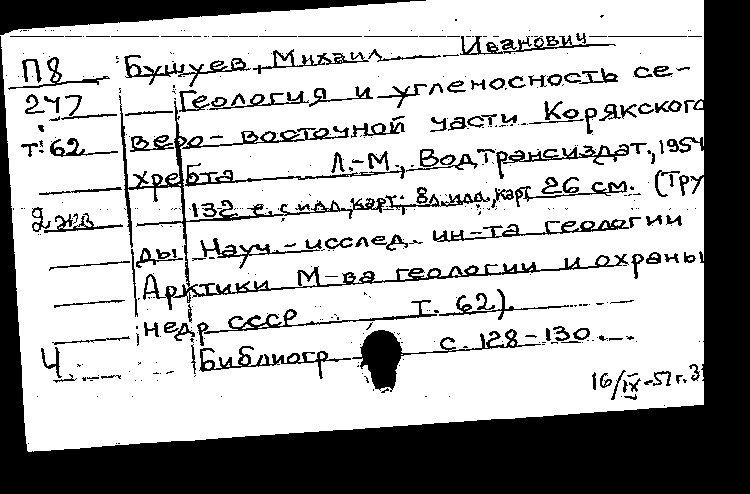 П8 Бушуев, Михаил Иванович
247 Геология и угленосность се-
т. 62 веро-восточной части Корякского
хребта Л.-М., Водтрансиздат, 1954
2 экз 132 с. с илл., карт; 8л. илл., карт 26 см. (Тру
ды Науч.-исслед. ин-та геологии
Арктики М-ва геологии и охраны
недр СССР. т. 62).
Ч. Библиогр с. 128-130.
16/IX-57г.